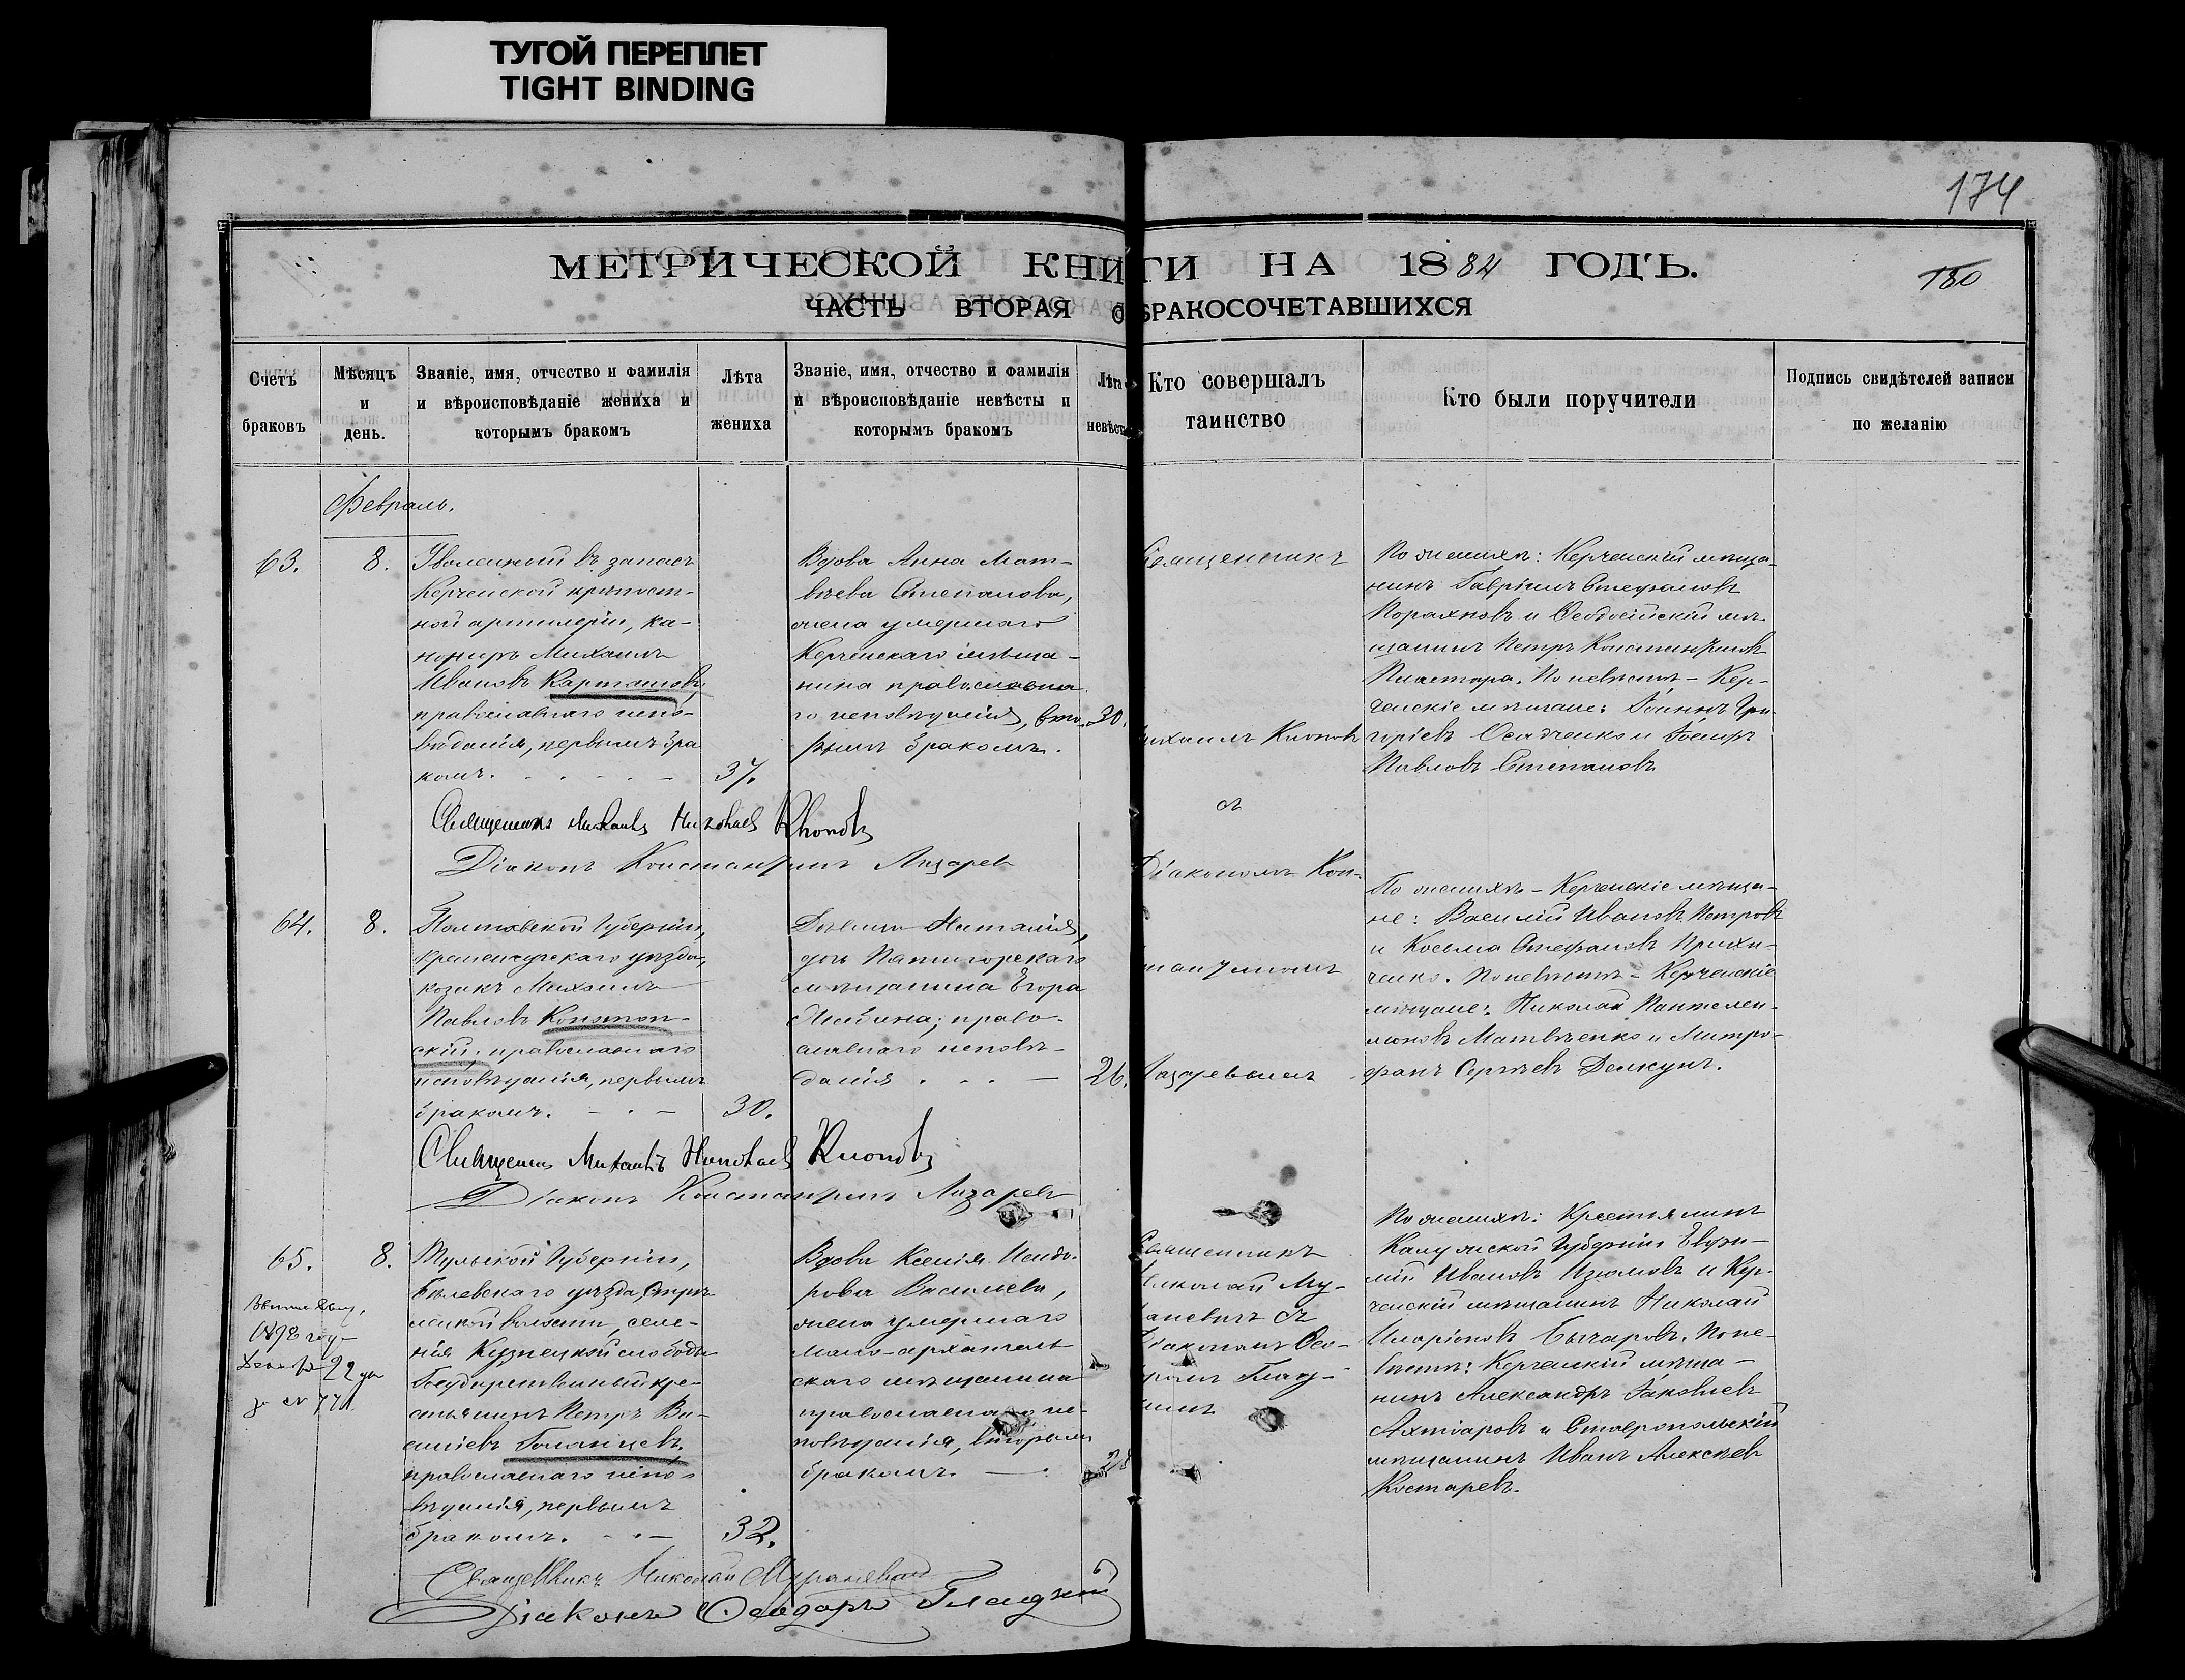 ТУГОЙ ПЕРЕПЛЕТ
TIGHT BINDING
174
МЕТРИЧЕСКОЙ КНИГИ НА 1884 ГОДЪ.
180
ЧАСТЬ ВТОРАЯ О БРАКОСОЧЕТАВШИХСЯ
Счетъ
браковъ
Мѣсяцъ
и
день.
Званіе, имя, отчество и фамилія
и вѣроисповѣданіе жениха и
которымъ бракомъ
Лѣта
жениха
Званіе, имя, отчество и фамилія
и вѣроисповѣданіе невѣсты и
которымъ бракомъ
Лѣта
невѣст
Кто совершалъ
таинство
Кто были поручители
Подпись свидѣтелей записи
по желанію
Февраль.
63.
8.
Уволенный въ запасъ
Керченской крѣпост-
ной артилеріи, ка-
нониръ Михаилъ
Ивановъ Карташовъ,
православнаго испо-
вѣданія, первымъ бра
комъ.
37.
Вдова Анна Мат-
вѣева Степанова,
жена умершаго
Керченскаго мѣща-
нина православна
го исповѣданія, вто-
рымъ бракомъ.
30.
Священникъ
ихаилъ Кионовъ
съ
Діакономъ Кон-
стантиномъ
Лазаревымъ
По женихѣ: Керченскій мѣща-
нинъ Гавріилъ Стефановъ
и Ѳеодосійскій мѣ-
щанинъ Петръ Константиновъ
Пластара. По невѣстѣ - Кер-
ченскіе мѣщане: Іоаннъ Гри-
горіевъ Осадченко и Іосифъ
Павловъ Степановъ
Священникъ Михаилъ Николаевъ Кионовъ
Діаконъ Константинъ Лазаревъ
64.
8.
Полтавской Губерніи,
Кременчугскаго уѣзда,
козакъ Михаилъ
Павловъ Конотоп-
скій, православнаго
исповѣданія, первымъ
бракомъ.
30.
Дѣвица Наталія,
дочь Пятигорскаго
мѣщанина Егора
право-
славнаго исповѣ-
данія
26.
По женихѣ - Керченскіе мѣща-
не: Василій Ивановъ Петровъ
и Косьма Стефановъ Прихо-
ченко. По невѣстѣ - Керченскіе
мѣщане: Николай Пантелеи-
моновъ Матвѣенко и Митро-
фанъ Сергѣевъ Делкунъ.
Священникъ Михаилъ Николаевъ Кионовъ
Діаконъ Константинъ Лазаревъ
65.
8.
1898 году
22 дня
за № 771
Тульской Губерніи,
Бѣлевскаго уѣзда, Стрѣ-
лецкой волости, селе-
нія Кузнецкой слободы
Государственный кре-
стьянинъ Петръ Ва-
силіевъ Голанцевъ,
православнаго испо-
вѣданія, первымъ
бракомъ.
32.
Вдова Ксенія Исидо-
рова Васильева,
жена умершаго
мало-архангель
скаго мѣщанина
православнаго ис-
повѣданія, вторымъ
бракомъ.
28
Священникъ
Николай Му-
раневичъ съ
Діакономъ Ѳео-
доромъ Глад-
кимъ
По женихѣ: Крестьянинъ
Калужской Губерніи Евфи-
мій Ивановъ Изюмовъ и Кер-
ченскій мѣщанинъ Николай
Иларіоновъ Бычаровъ. По не-
вѣстѣ: Керченскій мѣща-
нинъ Александръ Іаковлевъ
Ахтіаровъ и Ставропольскій
мѣщанинъ Иванъ Алексѣевъ
Костаревъ.
Священникъ Николай Мураневичъ
Діаконъ Ѳеодоръ Гладкій